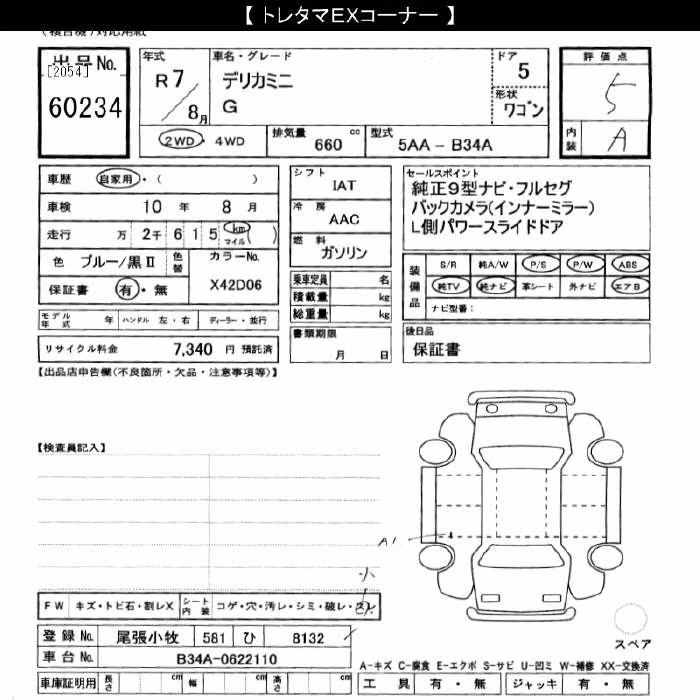 【 トレタマEXコーナー 】
(複合機)対応用紙
出品No.
[2054]
60234
年式
R7/8月
車名・グレード
デリカミニ
G
ドア
5
形状
ワゴン
評価点
5
内装
A
2WD・4WD
排気量 660 cc
型式 5AA－B34A
車歴 自家用・( )
車検 10 年 8 月
走行 万 2千 6 1 5 km マイル ( )
色 ブルー/黒Ⅱ 色替
カラーNo.
X42D06
保証書 有・無
シフト
IAT
冷房
AAC
燃料
ガソリン
乗車定員 名
積載量 kg
総重量 kg
書類期限
月 日
セールスポイント
純正9型ナビ・フルセグ
バックカメラ(インナーミラー)
L側パワースライドドア
装備品
S/R 純A/W P/S P/W ABS
純TV 純ナビ 革シート 外ナビ エアB
ナビ型番：
後日品
保証書
モデル年式 年 ハンドル 左・右 ディーラー・並行
リサイクル料金 7,340 円 預託済
【出品店申告欄(不良箇所・欠品・注意事項等)】
【検査員記入】
A1
小
FW キズ・トビ石・割レX シート内装 コゲ・穴・汚レ・シミ・破レ・スレ
登録No. 尾張小牧 581 ひ 8132
車台No. B34A-0622110
車庫証明用 長さ cm 幅 cm 高さ cm
スペア
A-キズ C-腐食 E-エクボ S-サビ U-凹ミ W-補修 XX-交換済
工具 有・無 ジャッキ 有・無